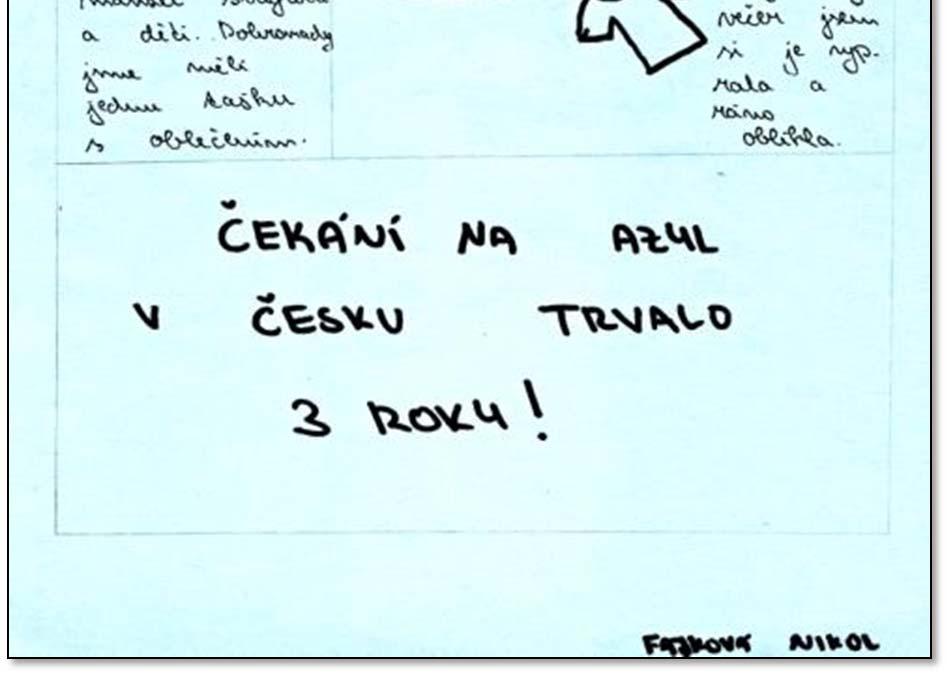 a děti. Dohromady
jsme měli
jednu tašku
s oblečením.
večer jsem
si je vyp-
rala a
ráno
oblékla.
ČEKÁNÍ NA AZYL
V ČESKU TRVALO
3 ROKY!
FAJKOVÁ NIKOL